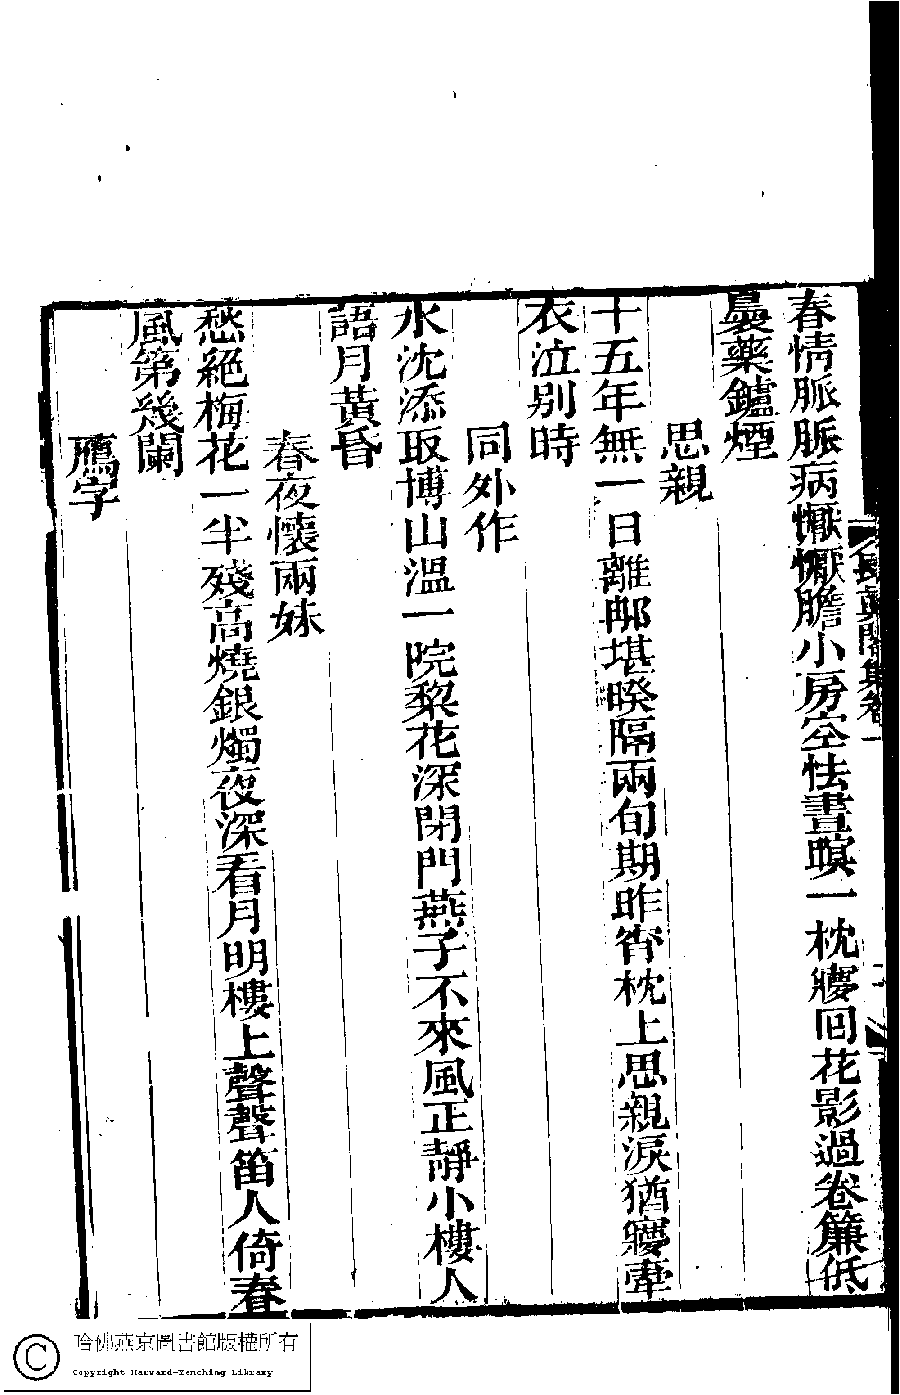 春情脈脈病懨懨膽小房空怯晝暝一枕㝱回花影過卷簾低
㬥藥鑪煙
思親
十五年無一日離郍堪暌隔兩旬期昨宵枕上思親淚猶㝱牽
衣泣別時
同外作
水沈添取博山溫一院棃花深閉門燕子不來風正靜小樓人
語月黃昏
春夜懷兩妹
愁絕梅花一半殘高燒銀燭夜深看月明樓上聲聲笛人倚春
風第幾闌
鴈字
長真閣集卷一
哈佛燕京圖書館版權所有
Copyright Harvard-Yenching Library